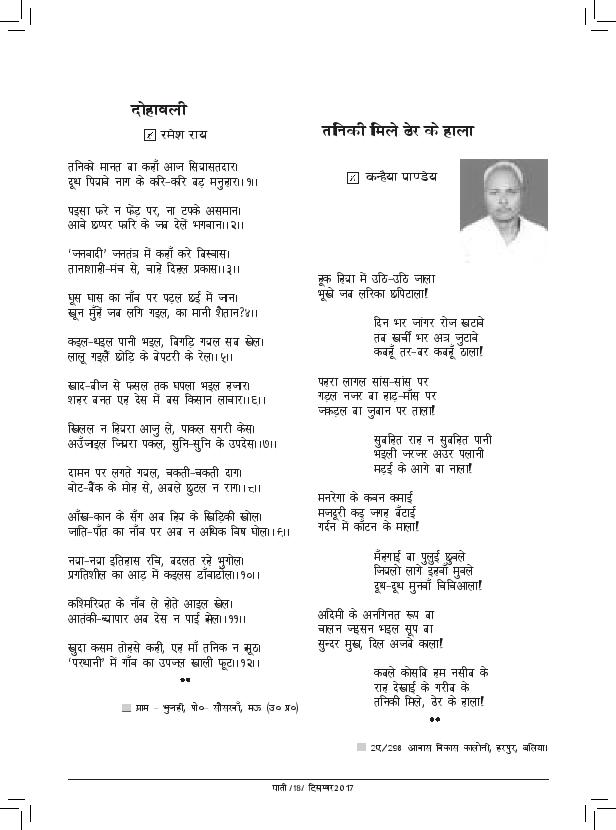 दोहावली
रमेश राय
तनिको मानत बा कहाँ आज सियासतदार।
दूध पियावे नाग के करि-करि बड़ मनुहार।।१।।
पइसा फरे न फेंड़ पर, ना टपके असमान।
आवे छप्पर फारि के जब देलें भगवान।।२।।
'जनवादी' जनतंत्र में कहाँ करे बिस्वास।
तानाशाही-मंच से, चाहे दिहल प्रकास।।३।।
घूस घास का नाँव पर पड़ल छई में जान।
खून मुँहें जब लगि गइल, का मानी शैतान?४।।
कइल-धइल पानी भइल, बिगड़ि गवल सब खेल।
लालू गइलैं छोड़ि के बेपटरी के रेल।।५।।
खाद-बीज से फसल तक घपला भइल हजार।
शहर बनत एह देस में बस किसान लाचार।।६।।
खिलल न हियरा आजु ले, पाकल सगरी केस।
अउँजाइल जियरा पकल, सुनि-सुनि के उपदेस।।७।।
दामन पर लगते गवल, चकती-चकती दाग।
वोट-बैंक के मोह से, अबले छुटल न राग।।८।।
आँख-कान के सँग अब हिय के खिड़िकी खोल।
जाति-पाँत का नाँव पर अब न अधिक बिष घोल।।९।।
नया-नया इतिहास रचि, बदलत रहे भुगोल।
प्रगतिशील का आड़ में कइलस डाँवाडोल।।१०।।
कश्मिरियत के नाँव ले होते आइल खेल।
आतंकी-ब्यापार अब देस न पाई झेल।।११।।
खुदा कसम तोहसे कही, एह माँ तनिक न झूठ।
'परधानी' में गाँव का उपजल खाली फूट।।१२।।
••
ग्राम - भुजही, पो०- सौसरवाँ, मऊ (उ० प्र०)
तनिकी मिले ढेर के हाला
कन्हैया पाण्डेय
हूक हिया में उठि-उठि जाला
भूखे जब लरिका छपिटाला!
दिन भर जांगर रोज खटावे
तब खर्ची भर अन्न जुटावे
कबहूँ तर-बर कबहूँ ठाला!
पहरा लागल सांस-सांस पर
गड़ल नजर बा हाड़-माँस पर
जकड़ल बा जुबान पर ताला!
सुबहित राह न सुबहित पानी
भइली जरजर अउर पलानी
मड़ई के आगे बा नाला!
मनरेगा के कवन कमाई
मजदूरी कइ जगह बँटाई
गर्दन में काँटन के माला!
मँहगाई बा पुलुई छुवले
जियलो लागे इहवाँ मुवले
दूध-दूध मुनवाँ बिबिआला!
अदिमी के अनगिनत रूप बा
चालन जइसन भइल सूप बा
सुन्दर मुख, दिल अजबे काला!
कबले कोसबि हम नसीब के
राह देखाई के गरीब के
तनिकी मिले, ढेर के हाला!
••
2ए/298 आवास विकास कालोनी, हरपुर, बलिया।
पाती /18/ दिसम्बर2017